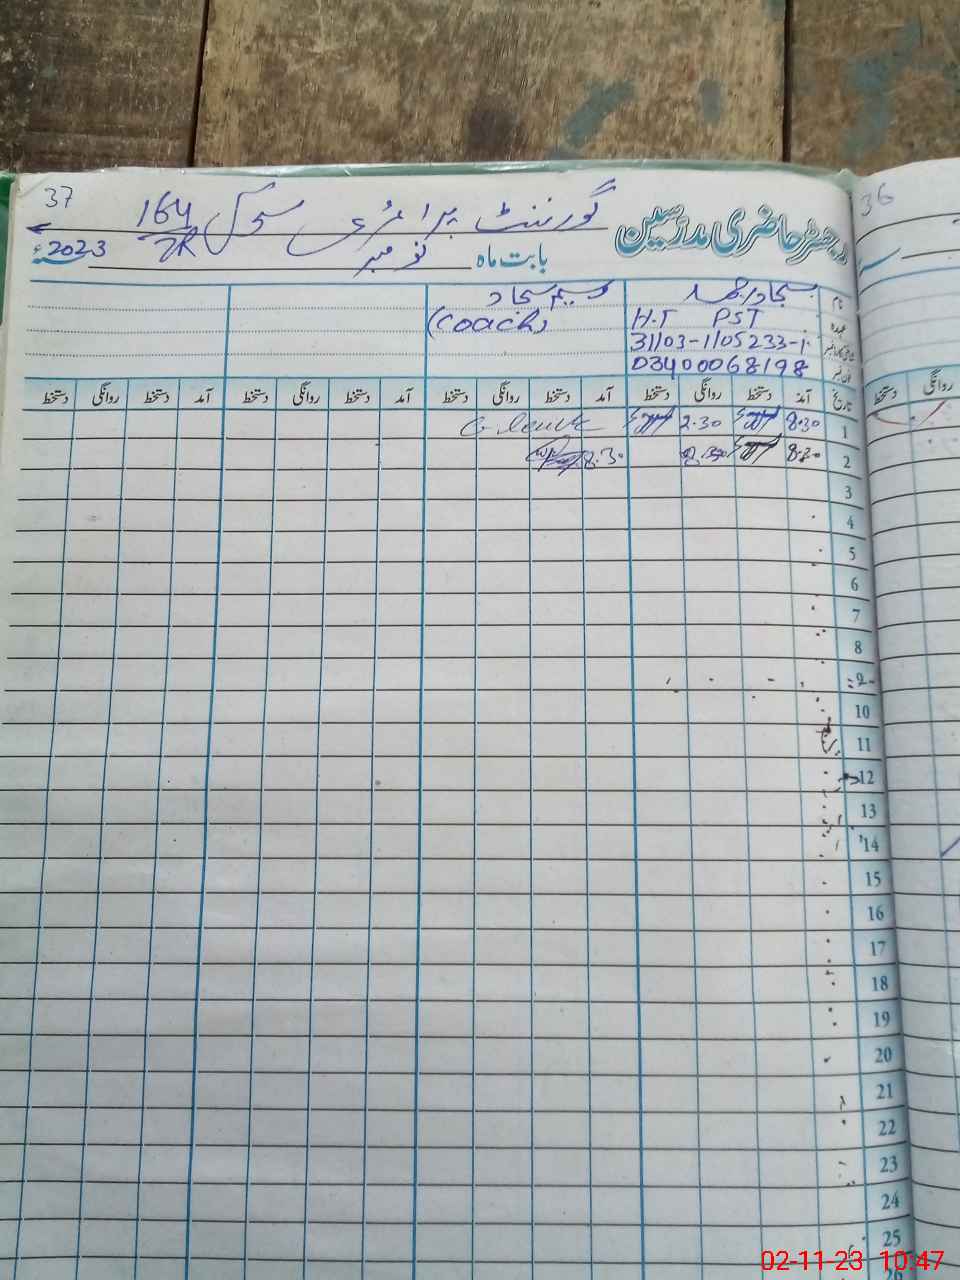 37
رجسٹر حاضری مدرسین گورنمنٹ پرائمری سکول 164/7R
بابت ماہ نومبر 2023ء
نام سجاد احمد وسیم سجاد
عہدہ H.T PST (Coach)
31103-1105233-1
03400068198
تاریخ آمد دستخط روانگی دستخط آمد دستخط روانگی دستخط آمد دستخط روانگی دستخط آمد دستخط روانگی دستخط
1 8.30 2.30
2 8.30 8.30
3
4
5
6
7
8
9
10
11
12
13
14
15
16
17
18
19
20
21
22
23
24
25
26
36
روانگی دستخط
02-11-23 10:47